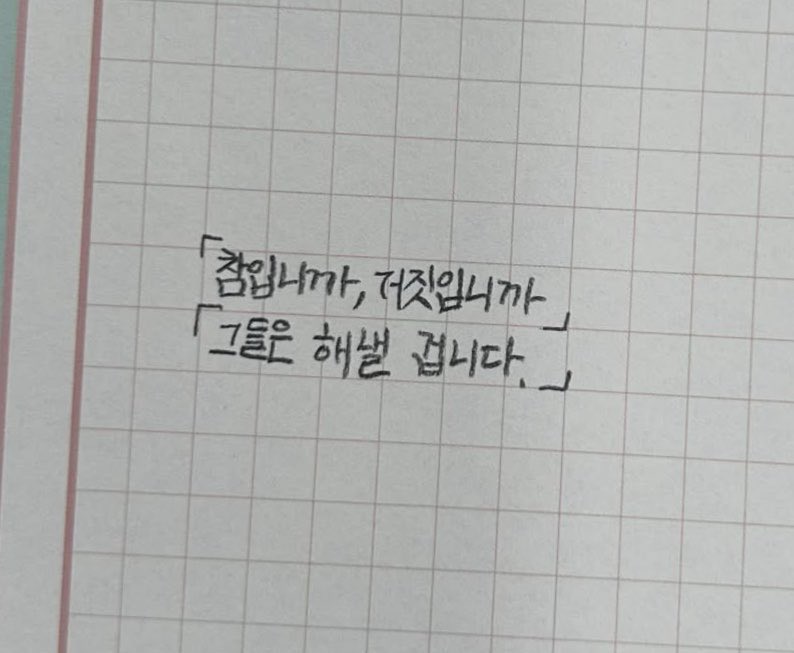 「참입니까, 거짓입니까」
「그들은 해낼 겁니다.」